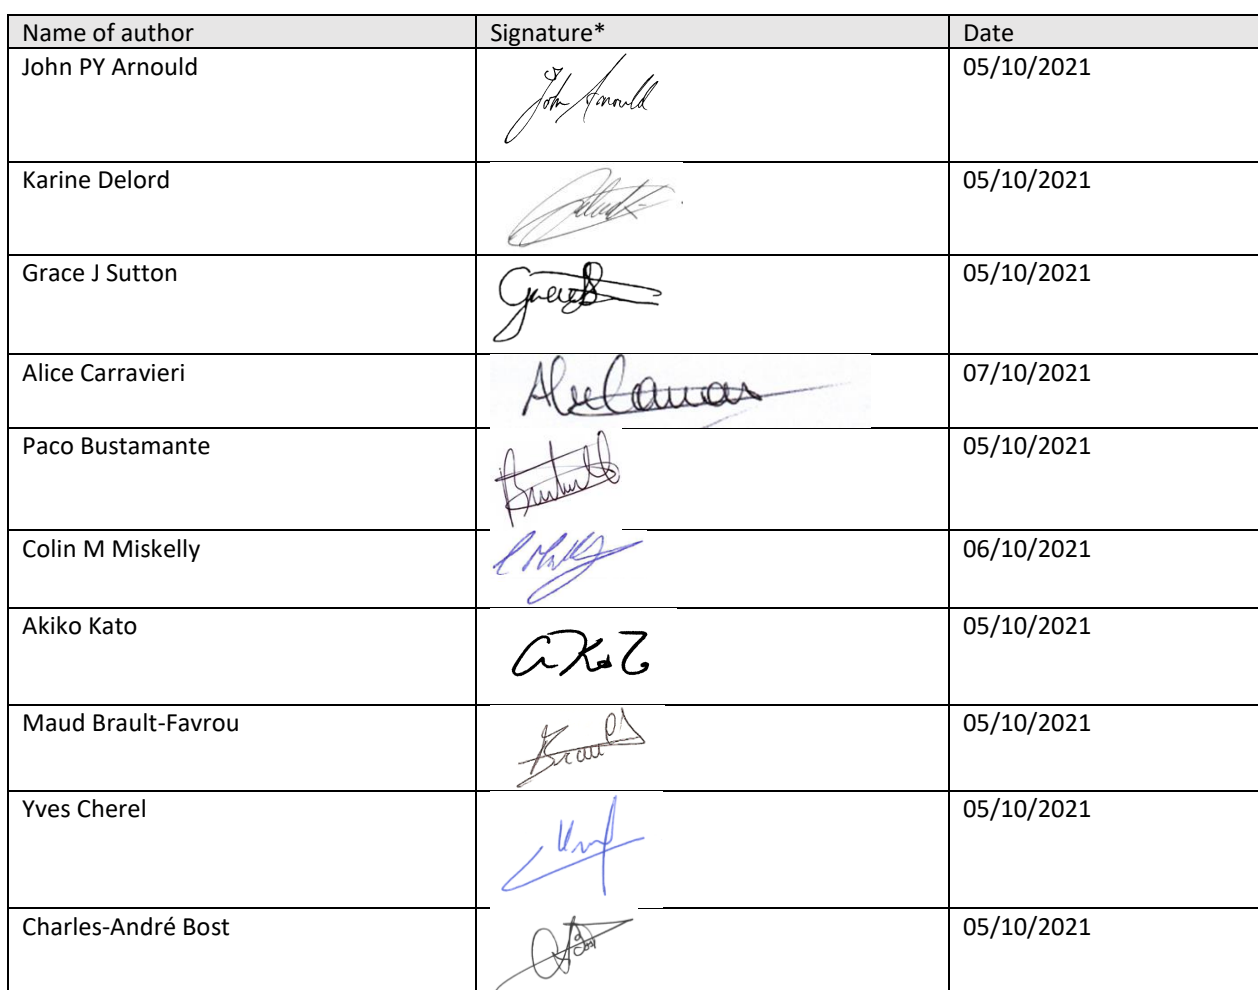 Name of author Signature* Date
John PY Arnould John Arnould 05/10/2021
Karine Delord 05/10/2021
Grace J Sutton 05/10/2021
Alice Carravieri 07/10/2021
Paco Bustamante 05/10/2021
Colin M Miskelly 06/10/2021
Akiko Kato 05/10/2021
Maud Brault-Favrou 05/10/2021
Yves Cherel 05/10/2021
Charles-André Bost 05/10/2021